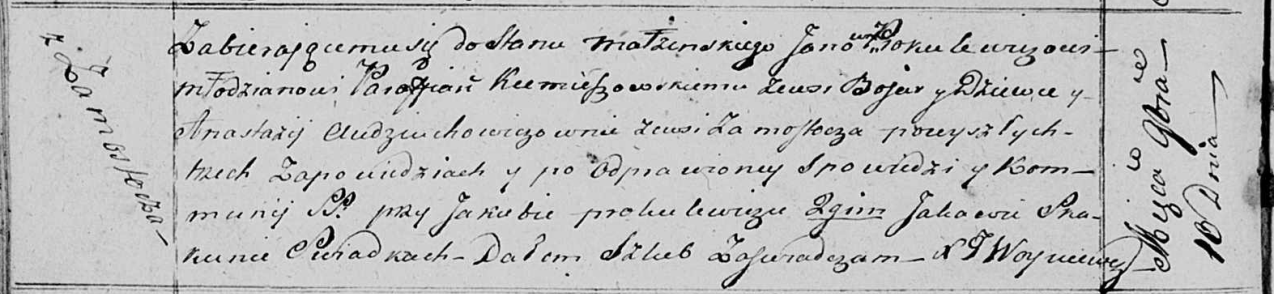 z Zamostocza
Zabierającemu się do Stanu małżenskiego Janowi Prokulewiczowi
młodzianowi Parafian Kiemieszowskiemu zewsi Bojar y Dziewce y
Anastazij Audziuchowiczownie zewsi Zamostocza powyszłych
trzech Zapowiedziach y po Odprawioney Spowiedzi y Kom-
munij Sś przy Jakubie prokulewiczu 2gim Jakowie
Swiadkach Dałem Szlub Zaswiadczam X J Woyniewicz
Mca 9bra
16 Dnia